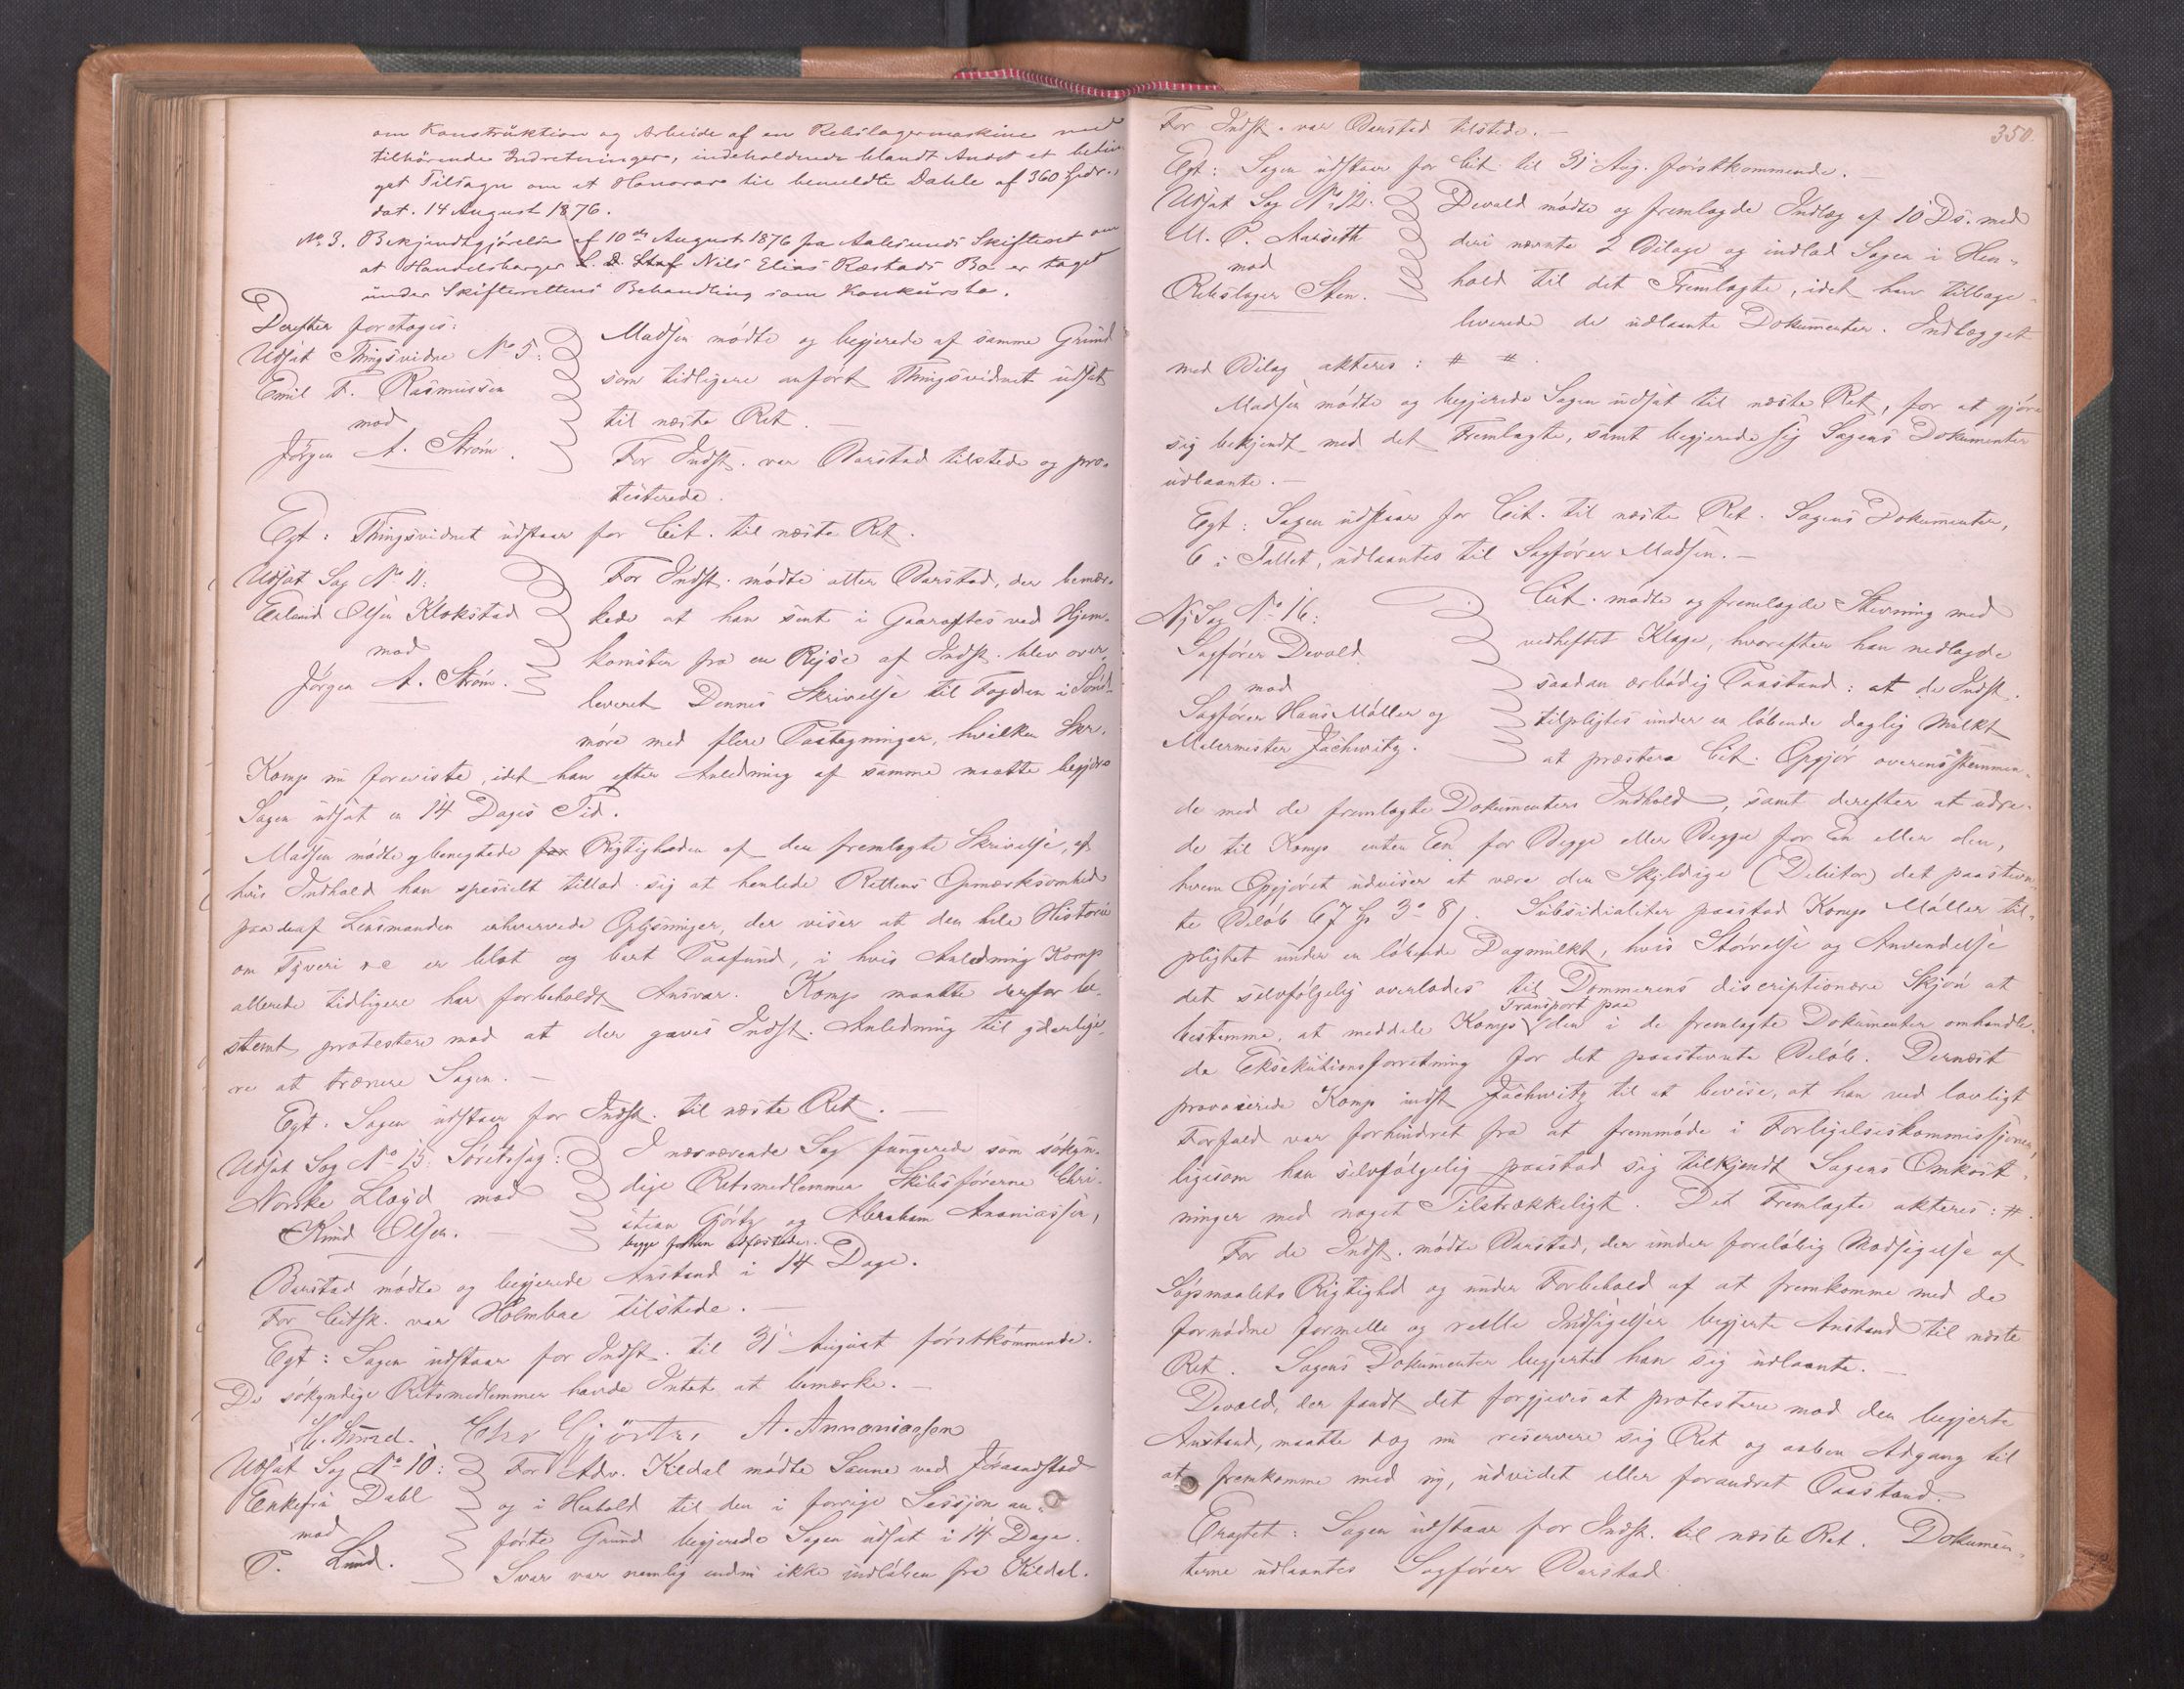 om Konstruktion og Arbeide af en Rebslagermaskine med
tilhörende Indretninger, indeholdende blandt Andet et betin-
get Tilsagn om et Honorar til bemeldte Dahle af 360 Spdr.,
dat. 14 August 1876.
No 3. Bekjendtgjörelse af 10de August 1876 fra Aalesunds Skifteret om
at Handelsborger Nils Elias Ræstads Bo er taget
under Skifterettens Behandling som Konkursbo.
Derefter foretoges:
Udsat Thingsvidne No 5:
Emil F. Rasmussen
mod
Jörgen A. Ström.
Madsen mödte og begjerede af samme Grund
som tidligere anfört Thingsvidnet udsat
til næste Ret.
For Indst. var Barstad tilstede og pro-
testerede.
Egt: Thingsvidnet udstaar for Cit. til næste Ret.
Udsat Sag No 11:
Erlend Olsen Klokstad
mod
Jörgen A. Ström.
For Indst. mödte atter Barstad, der bemær-
kede at han sent i Gaaraftes ved Hjem-
komsten fra en Rejse af Indst. blev over-
leveret Dennes Skrivelse til Fogden i Sönd-
möre med flere Paategninger, hvilken Skr.
Komp nu foreviste, idet han efter Anledning af samme maatte begjere
Sagen udsat en 14 Dages Tid.
Madsen mödte og benegtede Rigtigheden af den fremlagte Skrivelse, af
hvis Indhold han specielt tillod sig at henlede Rettens Opmærksomhed
paa de af Lensmanden erhvervede Oplysninger, der viser at den hele Historie
om Tyveri &c er blot og bart Paafund, i hvis Anledning Komp
allerede tidligere har forbeholdt Ansvar. Komp maatte derfor be-
stemt protestere mod at der gaves Indst. Anledning til yderlige-
re at trænere Sagen.
Egt. Sagen udstaar for Indst. til næste Ret.
Udsat Sag No 15. Söretssag:
Norske Lloyd mod
Knud Olsen.
I nærværende Sag fungerede som sökyn-
dige Retsmedlemmer Skibsförerne Chri-
stian Gjörtz og Abraham Ananiassen,
begge forhen edfæstede.
Barstad mödte og begjerede Anstand i 14 Dage.
For Citsk. var Holmboe tilstede.
Egt: Sagen udstaar for Indst. til 31 August förstkommende.
De sökyndige Retsmedlemmer havde Intet at bemærke.
Chr Gjörtz, A. Annaniassen
Udsat Sag No 10:
Enkefru Dahl
mod
P. Lund.
For Adv. Kildal mödte Saune ved Jöraandstad
og i Henhold til den i forrige Session an-
förte Grund begjerede Sagen udsat i 14 Dage.
Svar var nemlig endnu ikke indlöben fra Kildal.
350.
For Indst. var Barstad tilstede.
Egt: Sagen udstaar for Cit. til 31 Aug. förstkommende.
Udsat Sag No 12.
M. P. Aarseth
mod
Rebslager Sten.
Devold mödte og fremlagde Indlæg af 10 Ds. med
deri nævnte 2 Bilage og indlod Sagen i Hen-
hold til det Fremlagte, idet han tilbage-
leverede de udlaante Dokumenter. Indlægget
med Bilag akteres: # #.
Madsen mödte og begjerede Sagen udsat til næste Ret, for at gjöre
sig bekjendt med det Fremlagte, samt begjerede sig Sagens Dokumenter
udlaante.
Egt: Sagen udstaar for Cit. til næste Ret. Sagens Dokumenter,
6 i Tallet, udlaantes til Sagförer Madsen.
Ny Sag No 16:
Sagförer Devold
mod
Sagförer Hans Möller og
Malermester Jächwitz.
Cit. mödte og fremlagde Stevning med
vedheftet Klage, hvorefter han nedlagde
saadan ærbödig Paastand: at de Indst.
tilpligtes under en löbende daglig Mulkt
at præstere Cit. Opgjör overensstemmen-
de med de fremlagte Dokumenters Indhold, samt derefter at udre-
de til Komp enten En for Begge eller Begge for En eller den,
hvem Opgjöret udviser at være den Skyldige (Debitor) det paastevn-
te Belöb 67 Sp 3 - 8 s. Subsidialiter paastod Komp Möller til-
pligtet under en löbende Dagmulkt, hvis Störrelse og Anvendelse
det selvfölgelig overlodes til Dommerens discriptionære Skjön at
bestemme, at meddele Komp Transport paa den i de fremlagte Dokumenter omhandle-
de Eksekutionsforretning for det paastevnte Belöb. Dernæst
provocerede Komp indst Jächwitz til at bevise, at han ved lovligt
Forfald var forhindret fra at fremmöde i Forligelseskommissionen,
ligesom han selvfölgelig paastod sig tilkjendt Sagens Omkost-
ninger med noget Tilstrækkeligt. Det Fremlagte akteres: #.
For de Indst. mödte Barstad, der under forelöbig Modsigelse af
Sögsmaalets Rigtighed og under Forbehold af at fremkomme med de
fornödne formelle og reelle Indsigelser begjerte Anstand til næste
Ret. Sagens Dokumenter begjerte han sig udlaante.
Devold, der fandt det forgjeves at protestere mod den begjerte
Anstand, maatte dog nu reservere sig Ret og aaben Adgang til
at fremkomme med ny, udvidet eller forandret Paastand.
Eragtet: Sagen udstaar for Indst. til næste Ret. Dokumen-
terne udlaantes Sagförer Barstad